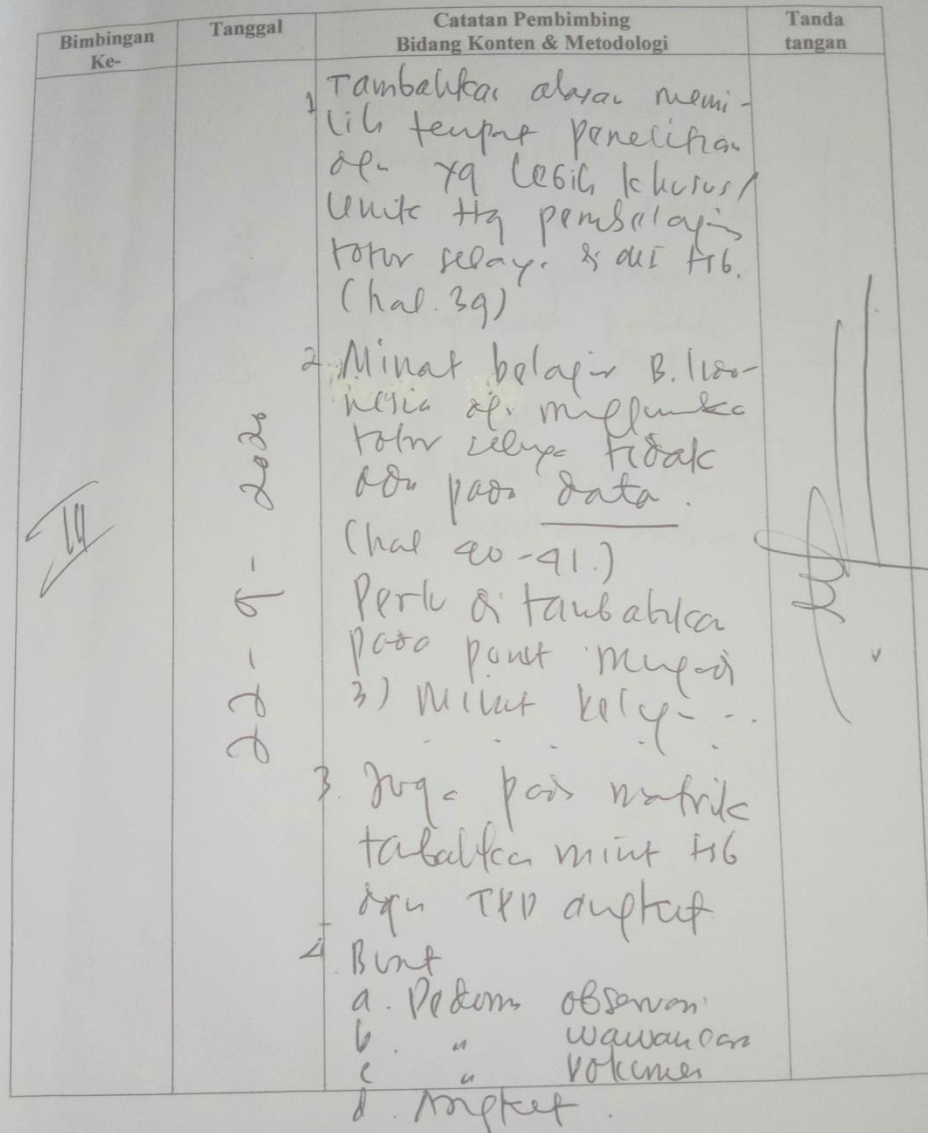 Bimbingan Ke-
Tanggal
Catatan Pembimbing
Bidang Konten & Metodologi
Tanda tangan
IV
22-9-2020
1 Tambahkan alasan memi-
lih tempat penelitian
yg lebih khusus/
unik ttg pembelajaran
tutor sebaya di tsb.
(hal. 39)
2. Minat belajar B. Indo-
nesia menggunakan
tutor sebaya tidak
ada pada data.
(hal 40-41.)
Perlu ditambahkan
pada point
3) Minat
3. Juga pada matrik
tambahkan minat tsb
dgn TPD angket
4. Buat
a. Pedoman observasi
b. " wawancara
c " Dokumen
d. Angket.